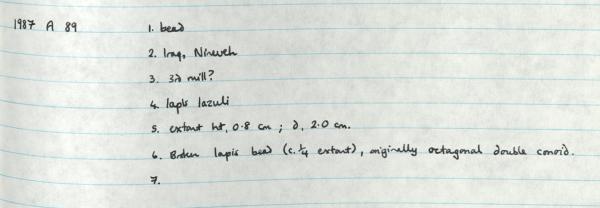 1987 A 89 1. bead
2. Iraq, Nineveh
3. 3rd mill?
4. lapis lazuli
5. extant ht, 0.8 cm ; d, 2.0 cm.
6. Broken lapis bead (c. 1/4 extant), originally octagonal double conoid.
7.